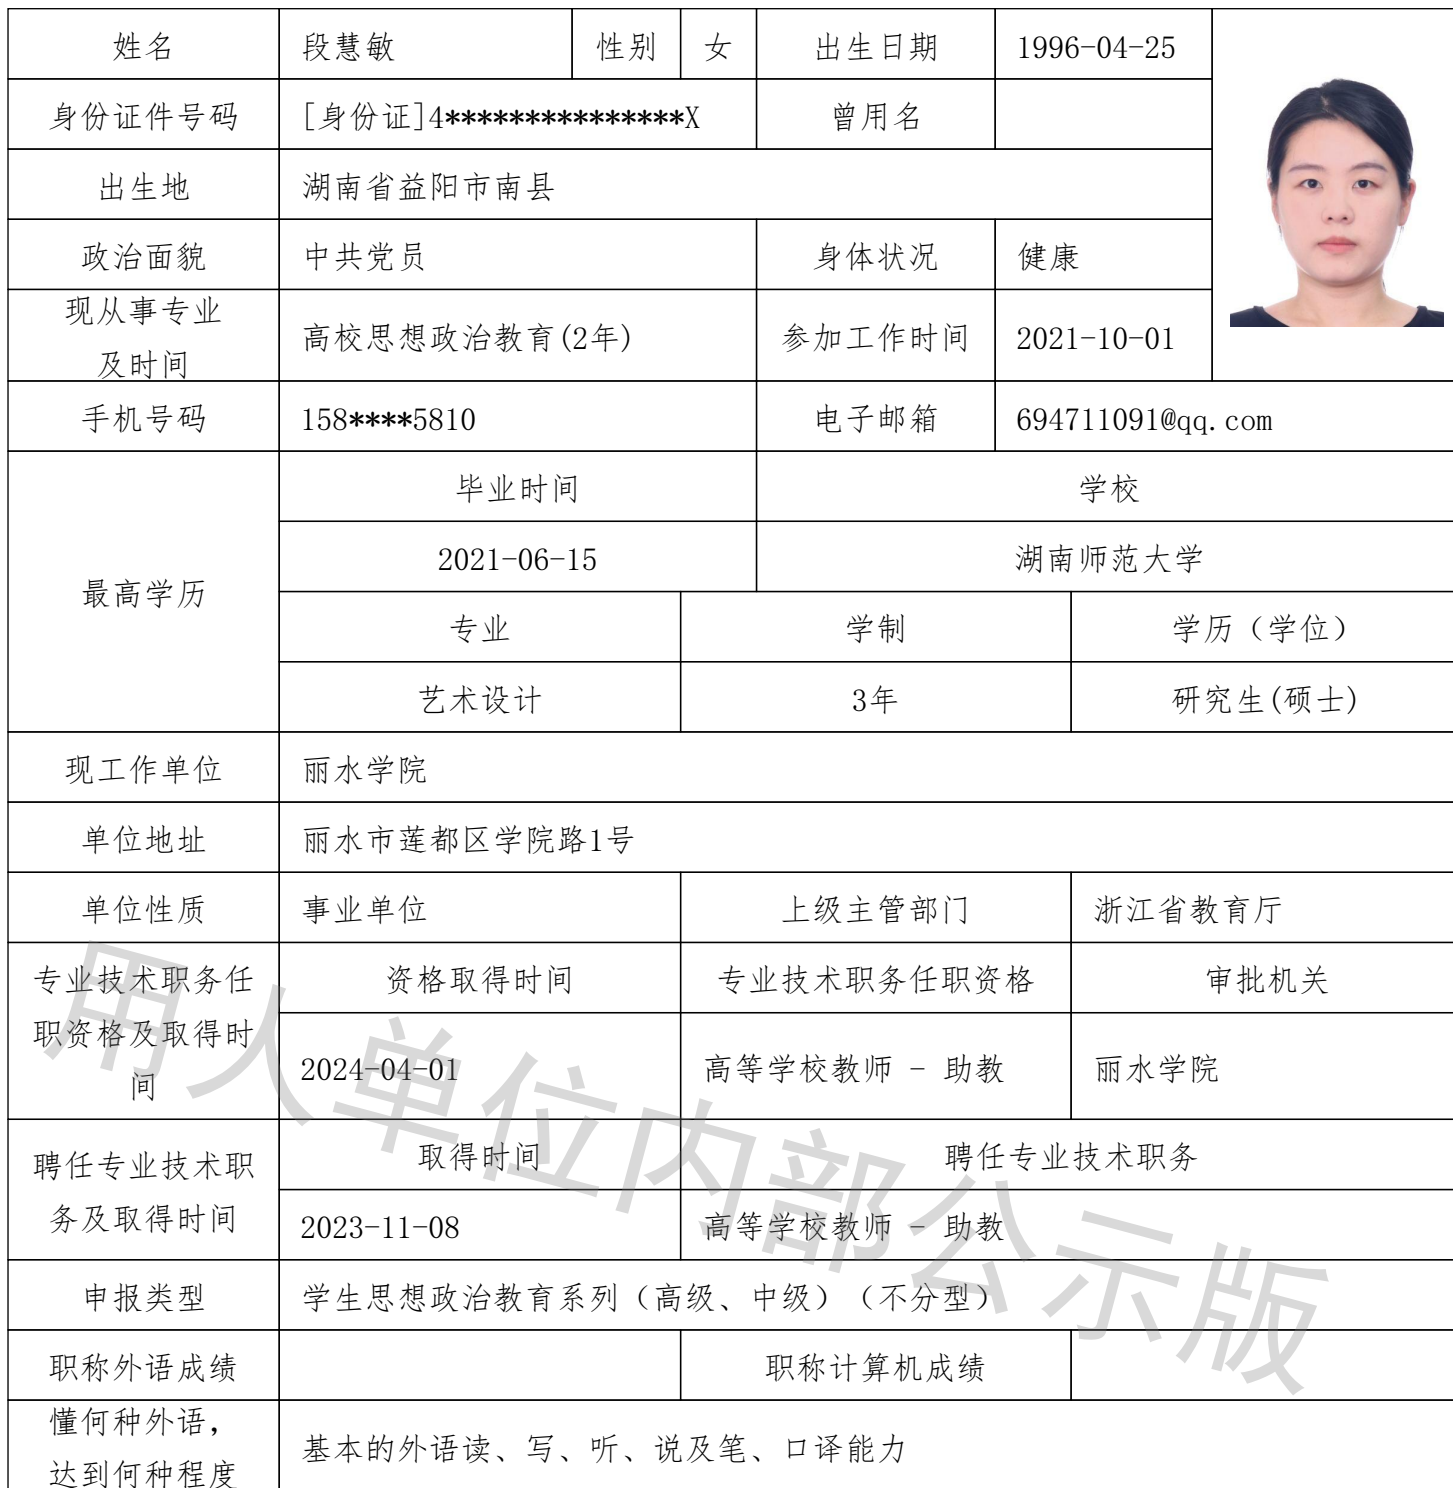 姓名 段慧敏 性别 女 出生日期 1996-04-25
身份证件号码 [身份证]4***************X 曾用名
出生地 湖南省益阳市南县
政治面貌 中共党员 身体状况 健康
现从事专业
及时间 高校思想政治教育(2年) 参加工作时间 2021-10-01
手机号码 158****5810 电子邮箱 694711091@qq.com
最高学历
毕业时间 学校
2021-06-15 湖南师范大学
专业 学制 学历（学位）
艺术设计 3年 研究生(硕士)
现工作单位 丽水学院
单位地址 丽水市莲都区学院路1号
单位性质 事业单位 上级主管部门 浙江省教育厅
专业技术职务任
职资格及取得时
间
资格取得时间 专业技术职务任职资格 审批机关
2024-04-01 高等学校教师 - 助教 丽水学院
聘任专业技术职
务及取得时间
取得时间 聘任专业技术职务
2023-11-08 高等学校教师 - 助教
申报类型 学生思想政治教育系列（高级、中级）（不分型）
职称外语成绩 职称计算机成绩
懂何种外语，
达到何种程度 基本的外语读、写、听、说及笔、口译能力
用人单位内部公示版